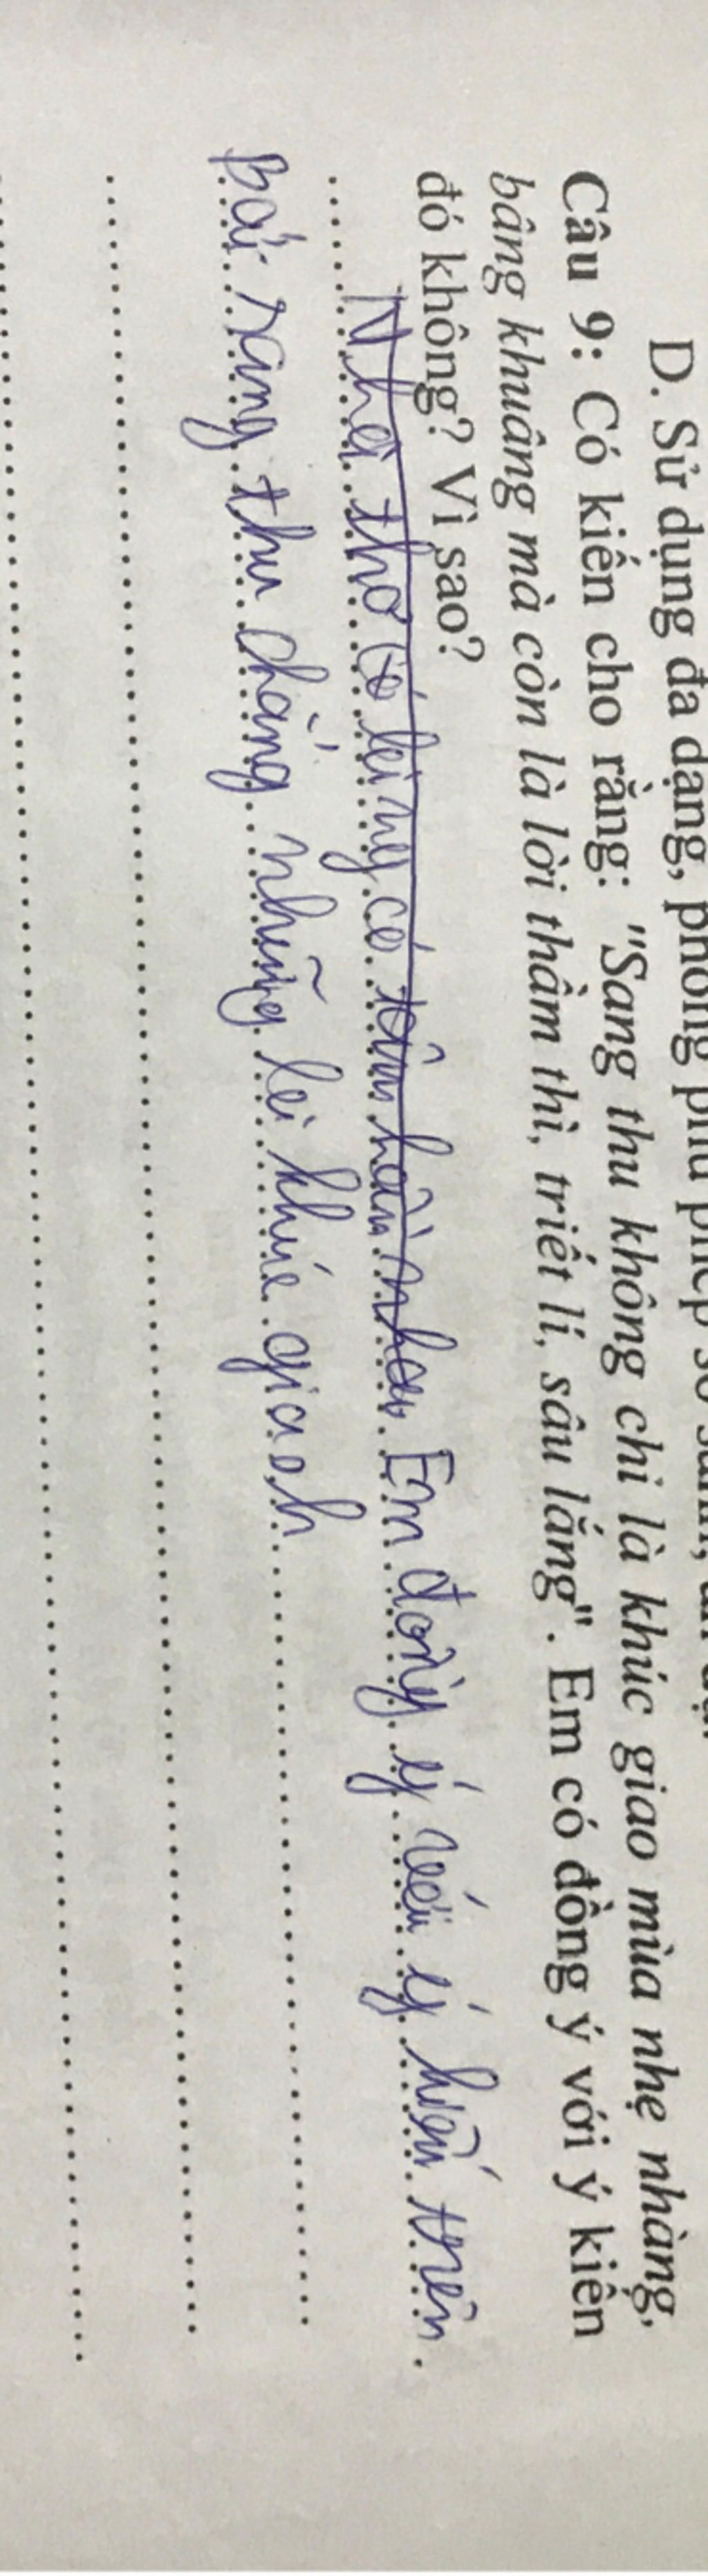 D. Sử dụng đa dạng, phong phú phép so sánh, ẩn dụ.
Câu 9: Có kiến cho rằng: "Sang thu không chỉ là khúc giao mùa nhẹ nhàng,
bâng khuâng mà còn là lời thầm thì, triết lí, sâu lắng". Em có đồng ý với ý kiến
đó không? Vì sao?
Nhà thơ có lẽ ng có Em đồng ý với ý kiến trên.
Bài sang thu chẳng những là khúc giaoh